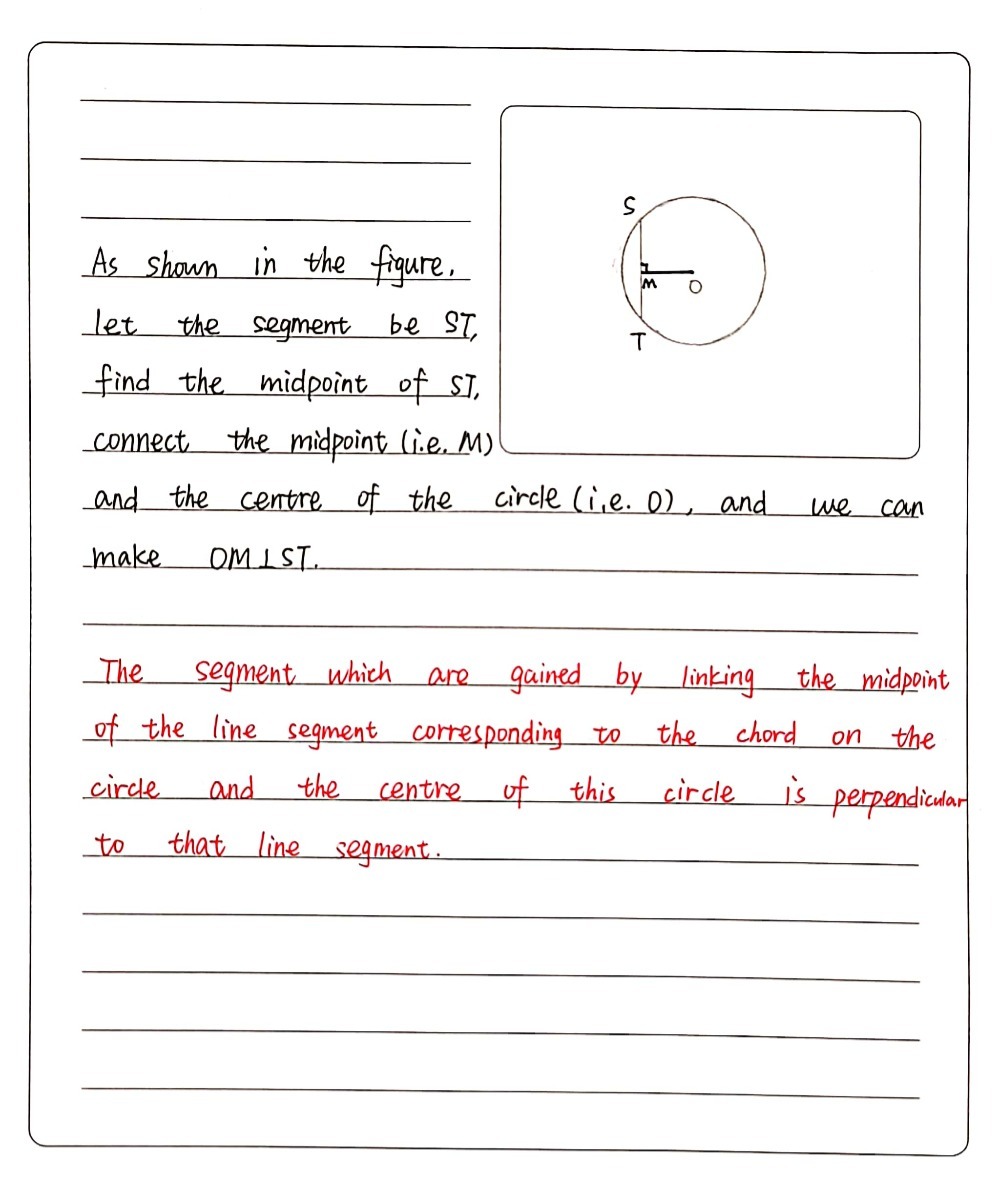 S
M
O
T
As shown in the figure,
let the segment be ST,
find the midpoint of ST,
connect the midpoint (i.e. M)
and the centre of the circle (i.e. O), and we can
make OM⊥ST.
The segment which are gained by linking the midpoint
of the line segment corresponding to the chord on the
circle and the centre of this circle is perpendicular
to that line segment.